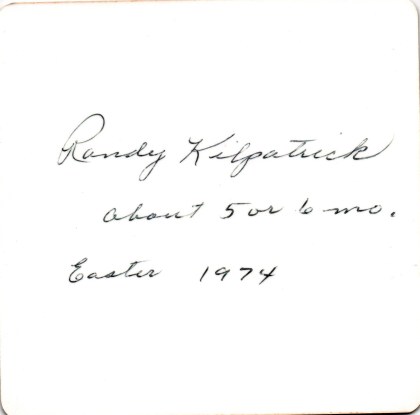 Randy Kilpatrick
about 5 or 6 mo.
Easter 1974